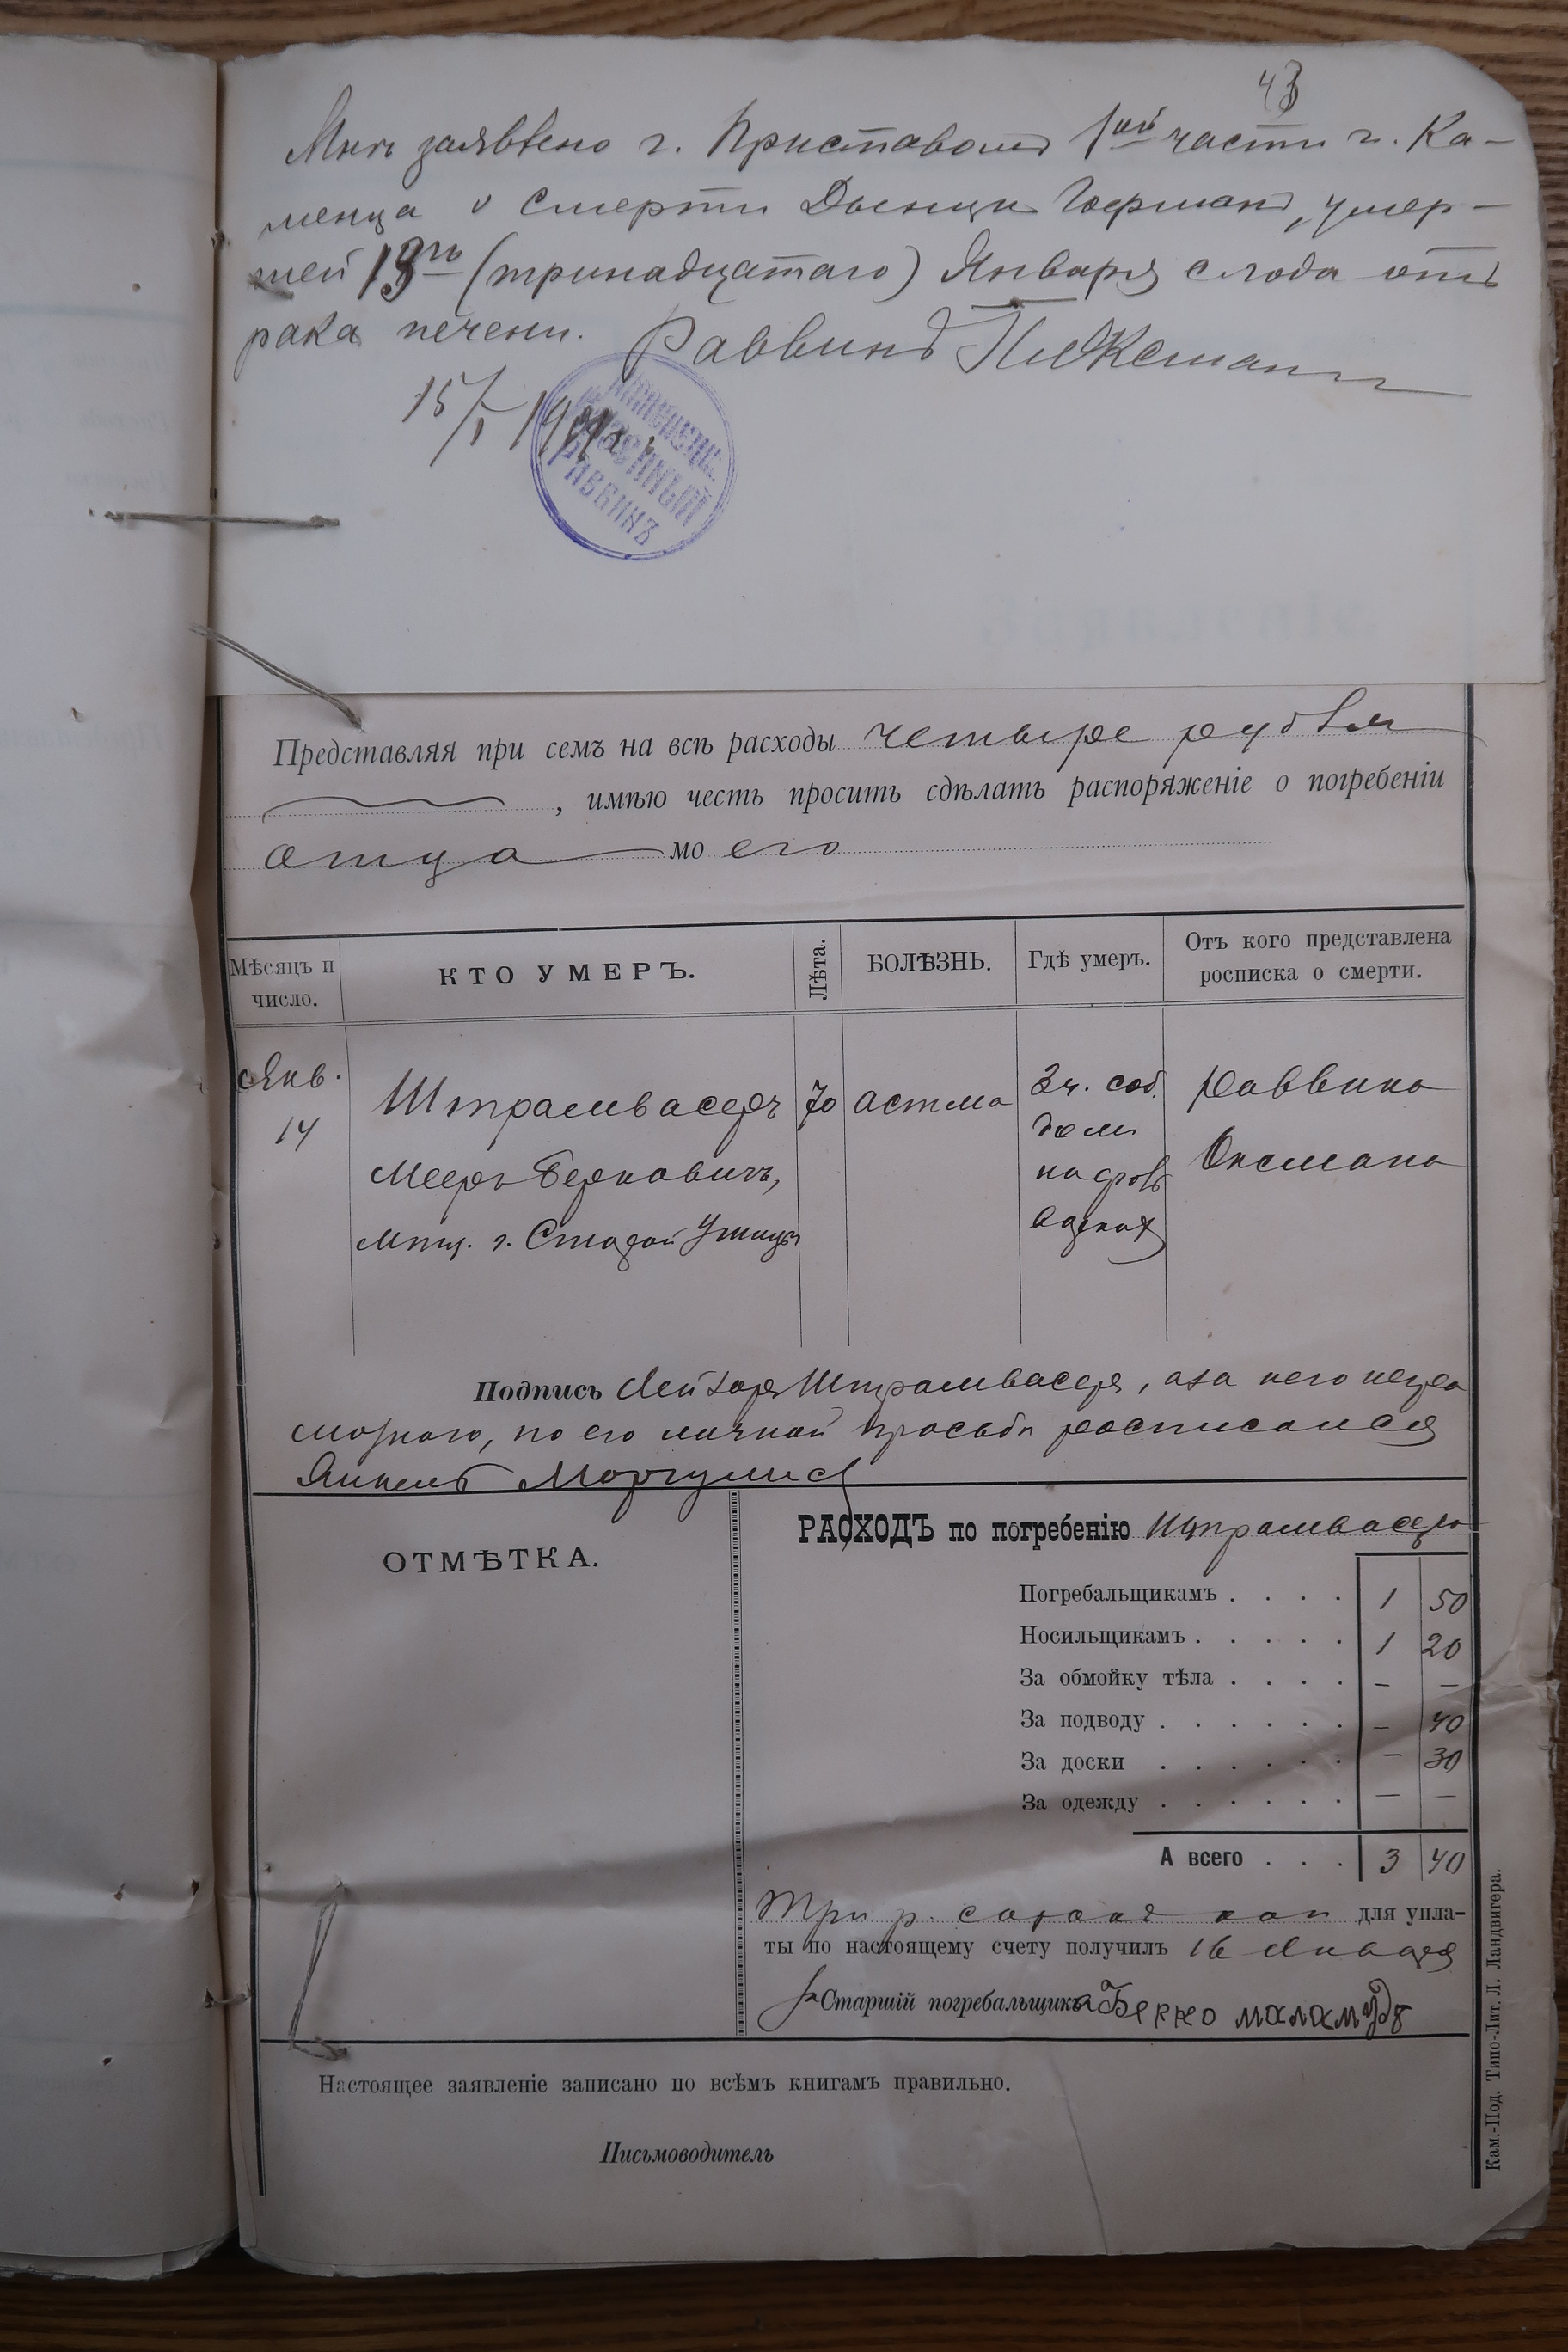 43
Мнѣ заявлено г. Приставомъ 1ой части г. Ка-
менца о смерти Двенци Гофманъ, умер-
шей 13го (тринадцатаго) Января с. года отъ
рака печени. Раввинъ
15/I
КАЗЕННЫЙ
РАВВИНЪ
Представляя при семъ на всѣ расходы четыре рубля
, имѣю честь просить сдѣлать распоряженіе о погребеніи
отца моего
Мѣсяцъ и число. КТО УМЕРЪ. Лѣта. БОЛѢЗНЬ. Гдѣ умеръ. Отъ кого представлена росписка о смерти.
Янв. 14 Штрамвасеръ 70 астма 2ч. соб. Раввина
Мееръ Берковичъ, домъ Оксмана
мѣщ. г. Старой Ушицы
Подпись Лейзора Штрамвасера, а за него негра
мотного, по его личной просьбѣ росписался
Янкель Моргулис
ОТМѢТКА.
РАСХОДЪ по погребенію Штрамвасера
Погребальщикамъ . . . . 1 50
Носильщикамъ . . . . . 1 20
За обмойку тѣла . . . . – –
За подводу . . . . . . – 40
За доски . . . . . . – 30
За одежду . . . . . . – –
А всего . . . 3 40
Три р. сорокъ коп для упла-
ты по настоящему счету получилъ 16 Января
Старшій погребальщика Берко маламудъ
Настоящее заявленіе записано по всѣмъ книгамъ правильно.
Письмоводитель
Кам.-Под. Типо-Лит. Л. Ландвигера.